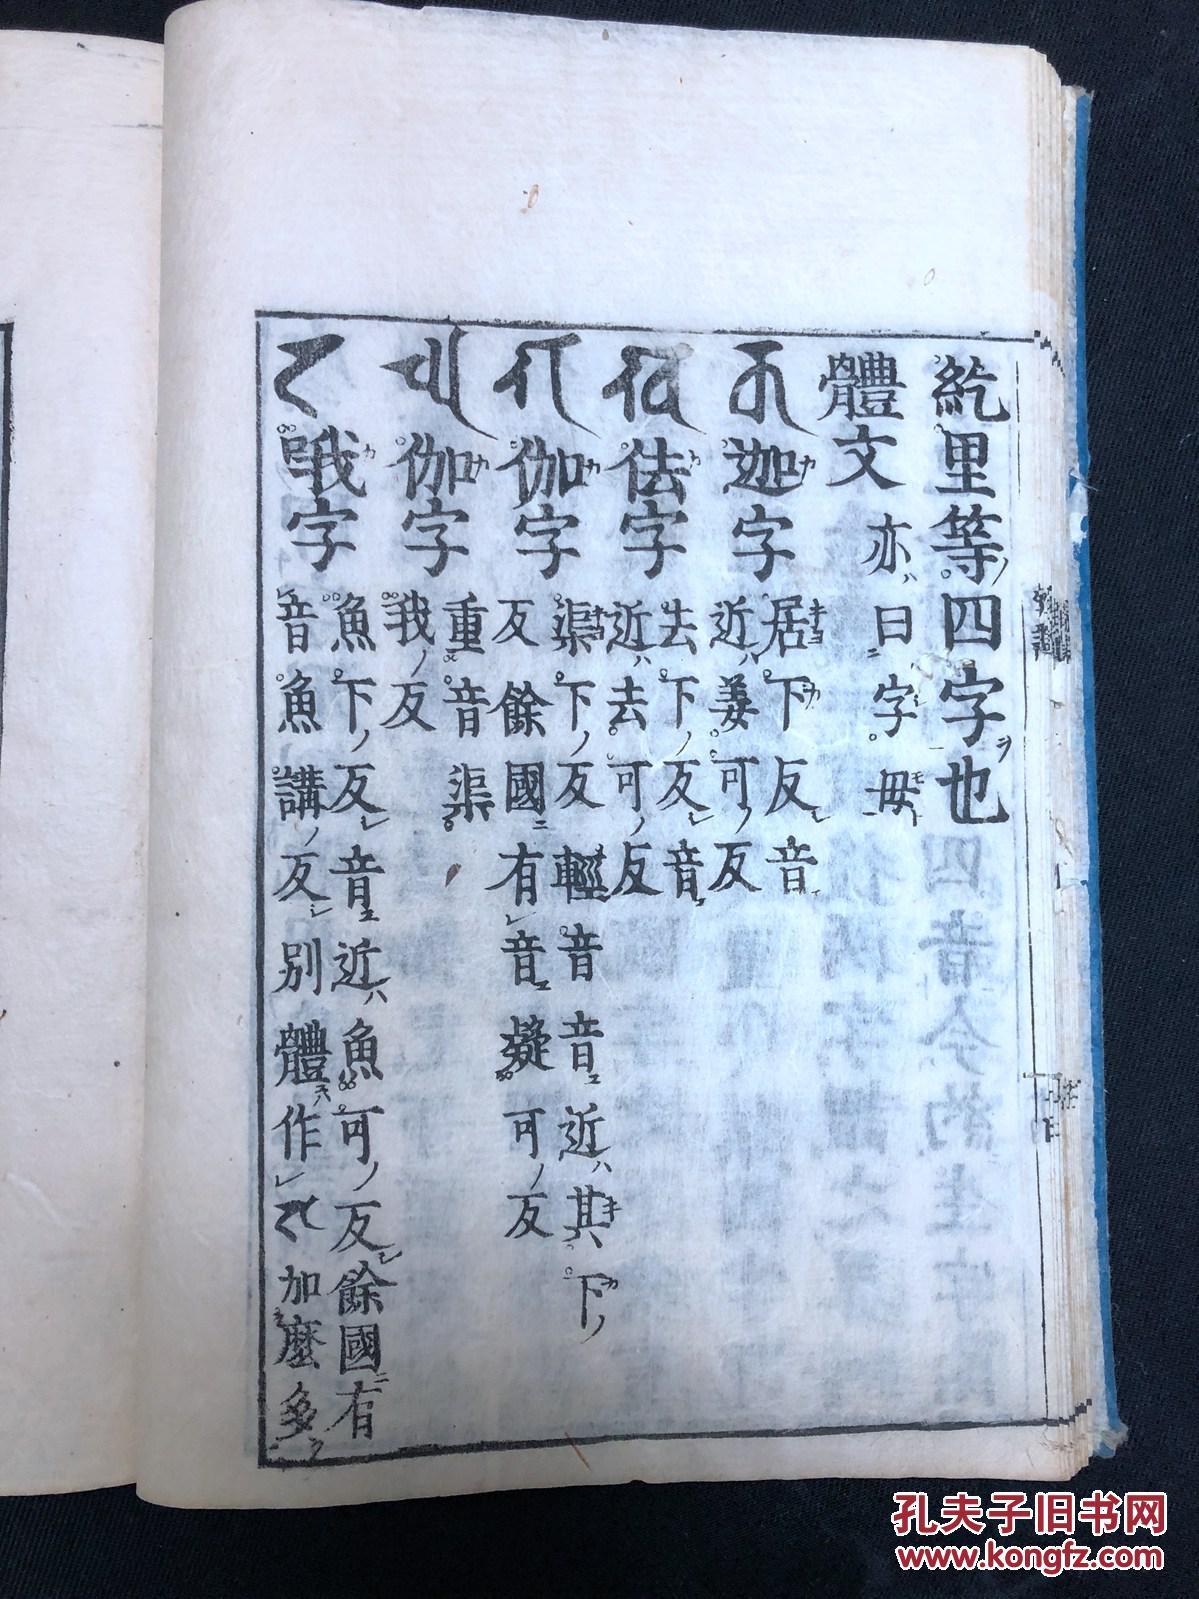 紇里等四字也
體文 亦曰字母
𑖎 迦字 居下反音
近姜可反
𑖏 佉字 去下反音
近去可反
𑖐 伽字 渠下反輕音音近其下
反餘國有音疑可反
𑖑 伽字 重音渠
我反
𑖒 哦字 魚下反音近魚可反餘國有
音魚講反別體作𑖒加麼多
孔夫子旧书网
www.kongfz.com